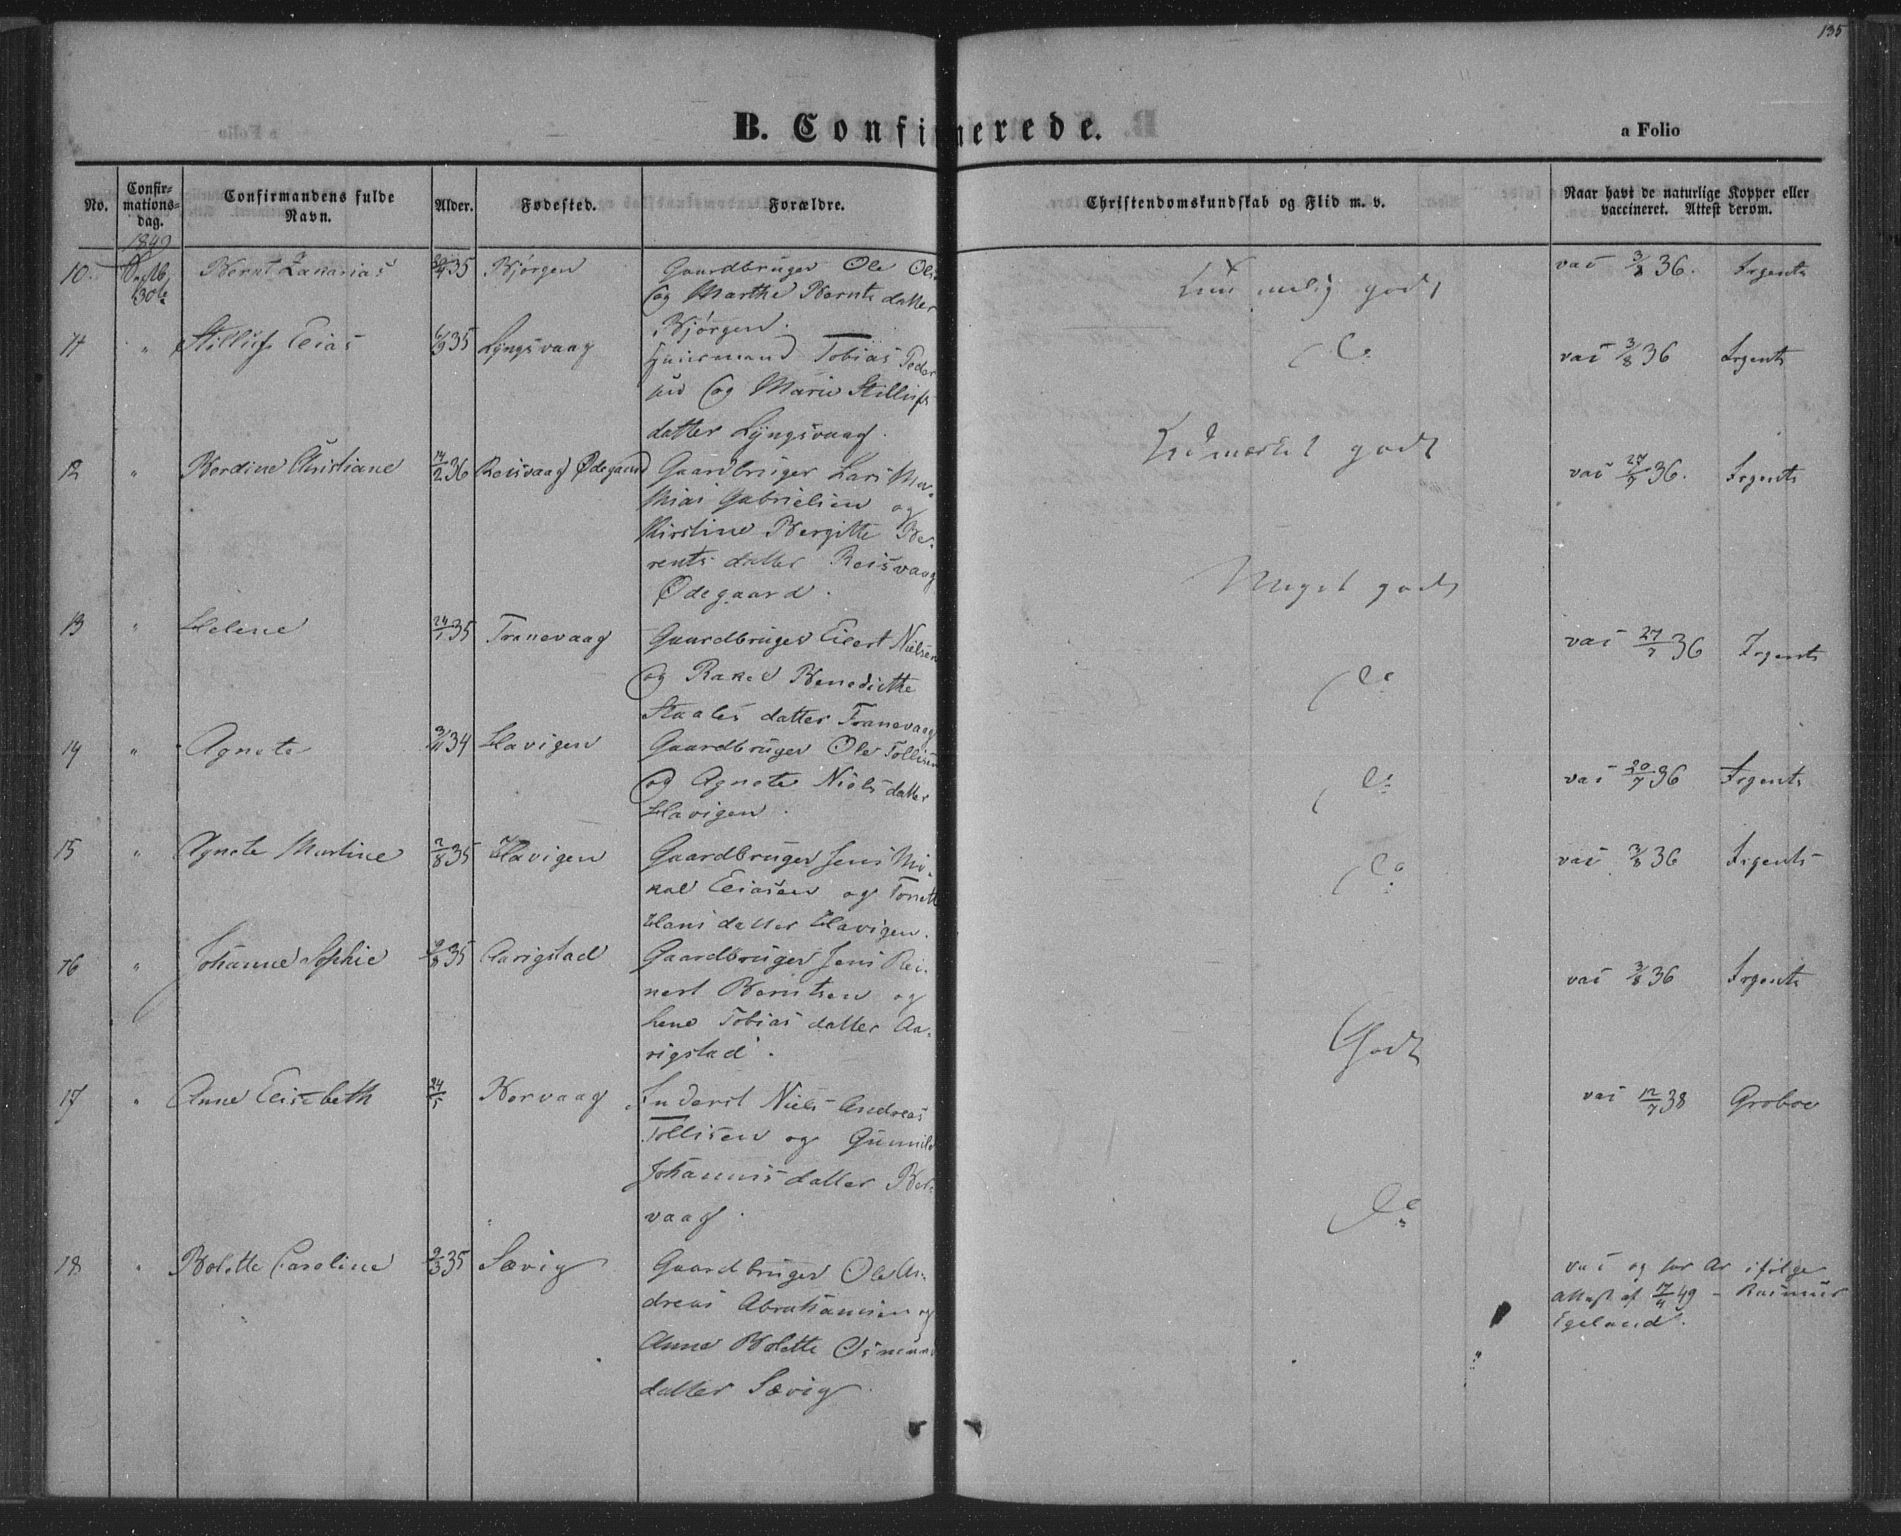 135
B. Confirmerede.
a Folio
No.
Confir-
mations-
dag.
Confirmandens fulde
Navn.
Alder.
Fødested.
Forældre.
Christendomskundskab og Flid m. v.
Naar havt de naturlige Kopper eller
vaccineret. Attest derom.
1849
10 Septb. 30te Bernt Zakarias 35 Bjørgen Gaardbruger Ole
og Marthe Bernts datter
Bjørgen.
godt
vac 3/8 36. Irgents
11 " Stillufs Elias 35 Lyngsvaag Huusmand Tobias Peder
sen og Marie Stillufs
datter Lyngsvaag.
do
vac 3/8 36 Irgents
12 " Berdine Christiane 14/2 36 Reisvaag Ødegaard Gaardbruger Lars Ma-
thias Gabrielsen og
Kirstine Bergitte Be-
rents datter Reisvaag
Ødegaard.
Udmærket godt
vac 27/7 36. Irgents
13 " Helene 24/1 35 Tranevaag Gaardbruger Eilert Nielsen
og Rakel Benedicthe
Staales datter Tranevaag
Meget godt
vac 27/7 36 Irgents
14 " Agnete 34 Havigen Gaardbruger Ole Tollisen
og Agnete Niels datter
Havigen.
do
vac 20/7 36 Irgents
15 " Agnete Martine 2/8 35 Havigen Gaardbruger Jens Mi-
kal Eliasen og Tonette
Hans datter Havigen.
do
vac 3/8 36 Irgents
16 " Johanne Sophie 35 Aarigstad Gaardbruger Jens Rei-
nert Berntsen og
Lene Tobias datter Aa-
rigstad.
do
vac 3/8 36 Irgents
17 " Anne Elisebeth 24/5 Borvaag Inderst Niels Andreas
Tollisen og Gunnild
Johannis datter Bor-
vaag.
Godt
vac 12/7 38 Groboe
18 " Bolette Caroline 2/3 35 Sævig Gaardbruger Ole An-
dreas Abrahamsen og
Anne Bolette Osmunds
datter Sævig
do
vac og har Ar ifølge
Attest af 7/4 49 – Rasmus
Egeland.